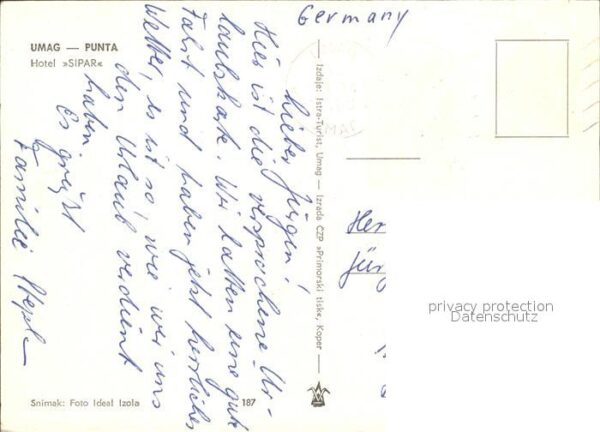 UMAG — PUNTA
Hotel »SIPAR«
Germany
Lieber Jürgen!
Hier ist die versprochene Ur-
laubskarte. Wir hatten eine gute
Fahrt und haben jetzt herrliches
Wetter, es ist so, wie wir uns
den Urlaub verdient
haben.
Es grüßt
Familie
Izdaje: Istra-Turist, Umag — Izrada ČZP »Primorski tisk«, Koper
Her
Jür
privacy protection
Datenschutz
Snimak: Foto Ideal Izola
187